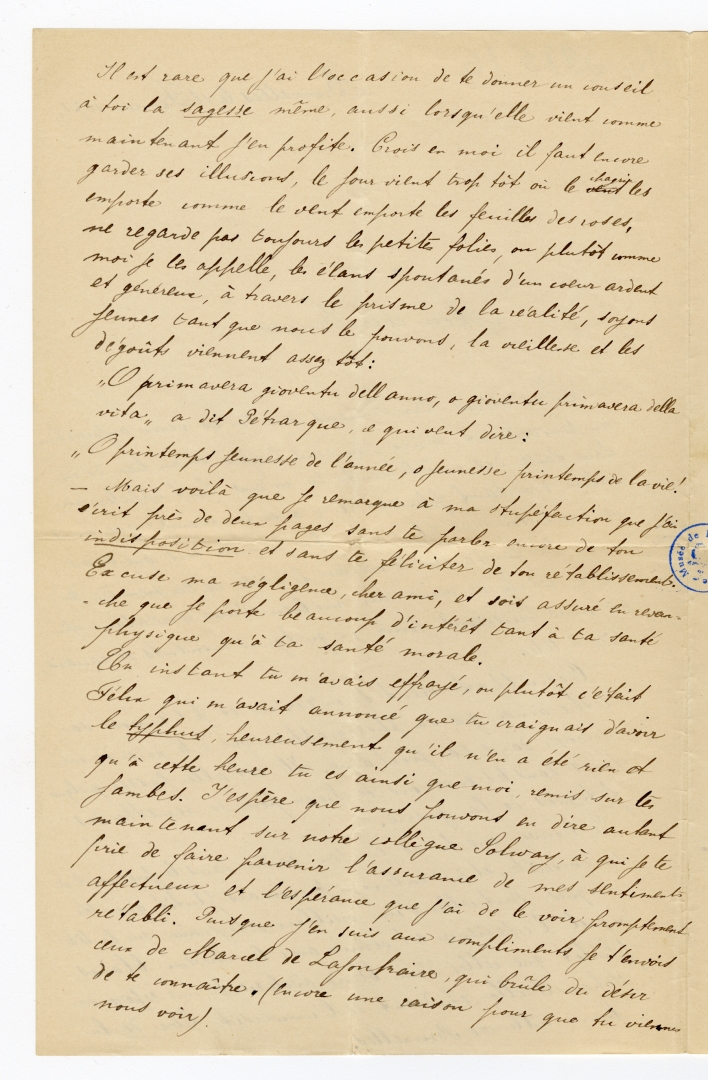 Il est rare que j'ai l'occasion de te donner un conseil
à toi la sagesse même, aussi lorsqu'elle vient comme
maintenant j'en profite. Crois en moi il faut encore
garder ses illusions, le jour vient trop tôt où le chagrin les
emporte comme le vent emporte les feuilles des roses,
ne regarde pas toujours les petites folies, ou plutôt comme
moi je les appelle, les élans spontanés d'un coeur ardent
et généreux, à travers le prisme de la réalité, soyons
jeunes tant que nous le pouvons, la vieillesse et les
dégoûts viennent assez tôt :
„O primavera gioventu dell anno, o gioventu primavera della
vita„ a dit Pétrarque, ce qui veut dire :
„O printemps jeunesse de l'année, o jeunesse printemps de la vie!
— Mais voilà que je remarque à ma stupéfaction que j'ai
écrit près de deux pages sans te parler encore de ton
indisposition et sans te féliciter de ton rétablissement.
Excuse ma négligence, cher ami, et sois assuré en revan-
-che que je porte beaucoup d'intérêt tant à ta santé
physique qu'à ta santé morale.
Un instant tu m'avais effrayé, ou plutôt c'était
Félix qui m'avait annoncé que tu craignais d'avoir
le typhus, heureusement qu'il n'en a été rien et
qu'à cette heure tu es ainsi que moi, remis sur tes
jambes. J'espère que nous pouvons en dire autant
maintenant sur notre collègue Solway, à qui je te
prie de faire parvenir l'assurance de mes sentiments
affectueux et l'espérance que j'ai de le voir promptement
rétabli. Puisque j'en suis aux compliments je t'envois
ceux de Marcel de Lafontraire, qui brûle du désir
de te connaître. (encore une raison pour que tu viennes
nous voir).
Musée de